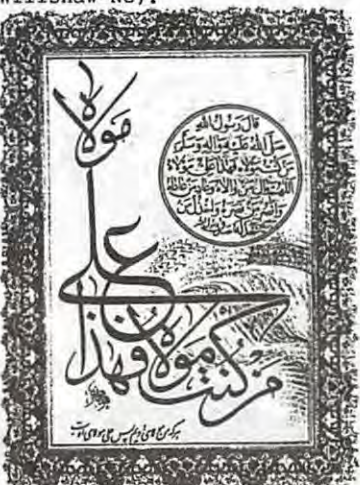 Willshaw Rd.
مولاه
علی
من کنت مولاه فهذا
قال رسول الله
صلى الله عليه وآله وسلم
من كنت مولاه فهذا علي مولاه
اللهم وال من والاه وعاد من عاداه
وانصر من نصره واخذل من
خذله